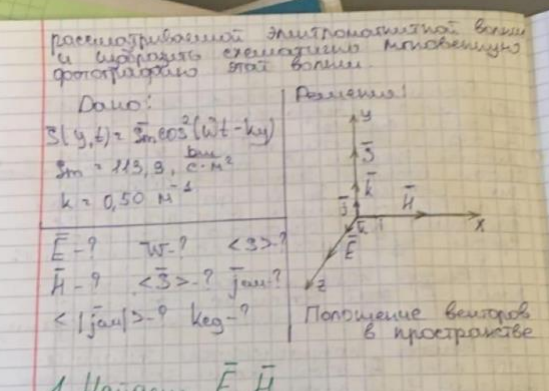 рассматриваемой электромагнитной волны
и изобразить схематично мгновенную
фотографию этой волны.
Дано:
S(y,t) = S̄m cos²(Wt - ky)
Sm = 119,9
k = 0,50 м⁻¹
Ē - ? W - ? <S> - ?
H̄ - ? <S̄> - ? j̄см - ?
<|j̄см|> - ? kед - ?
Решение:
y
S̄
k̄
j̄
H̄
x
Ē
z
Положение векторов
в пространстве
Ē, H̄